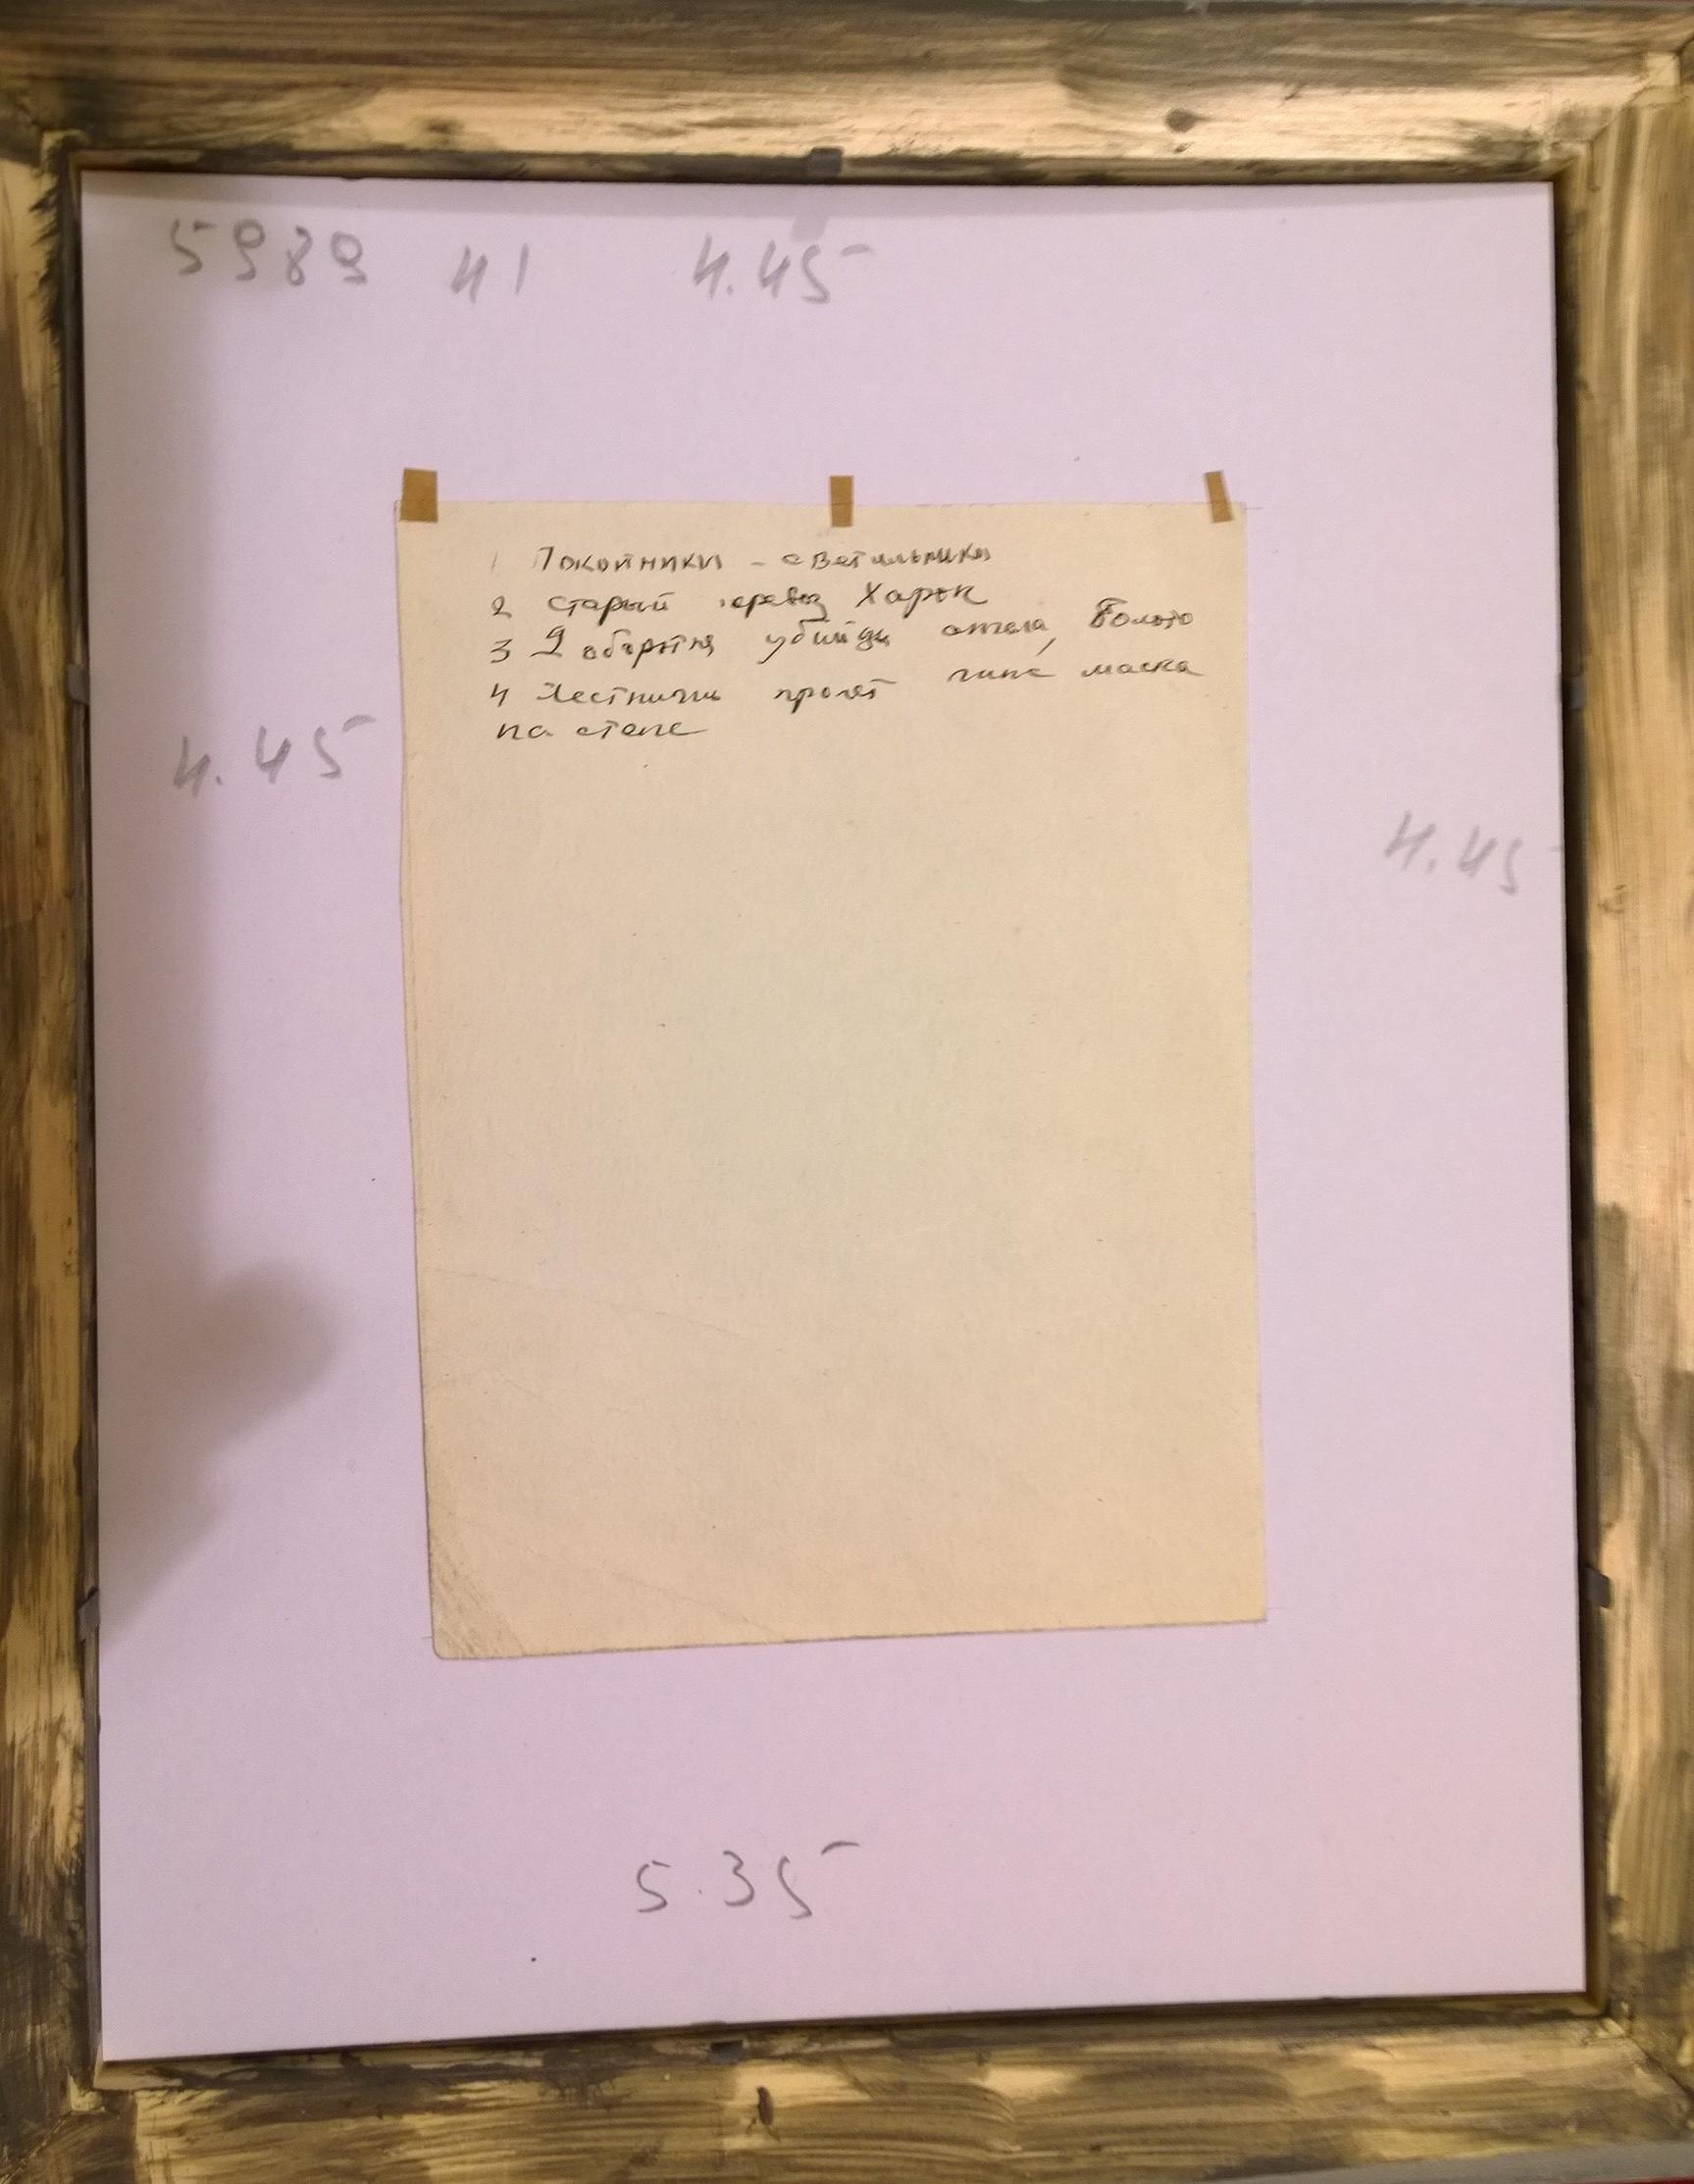 5989 41 4.45
1 Покойники - светильники
2 старый перевоз Харон
3 2 оборотня убийцы ангела, Болото
4 Лестничн пролёт гипс маска
на стене
4.45
4.45
5.35